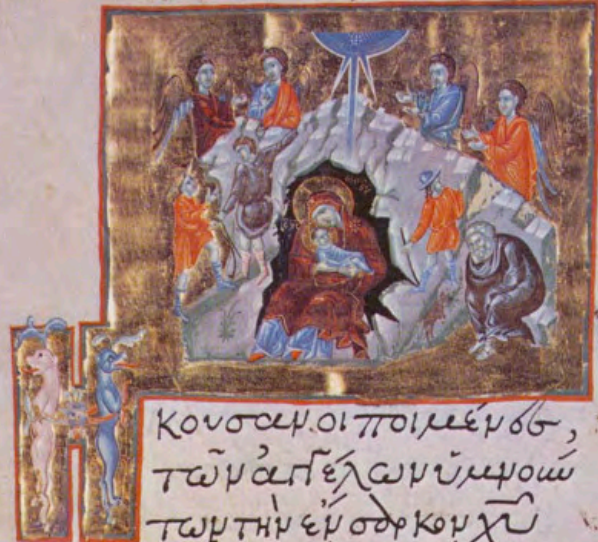 Ηκουσαν οι ποιμένες,
τῶν ἀγγέλων ὑμνούν
των τὴν ἔνσαρκον χῦ